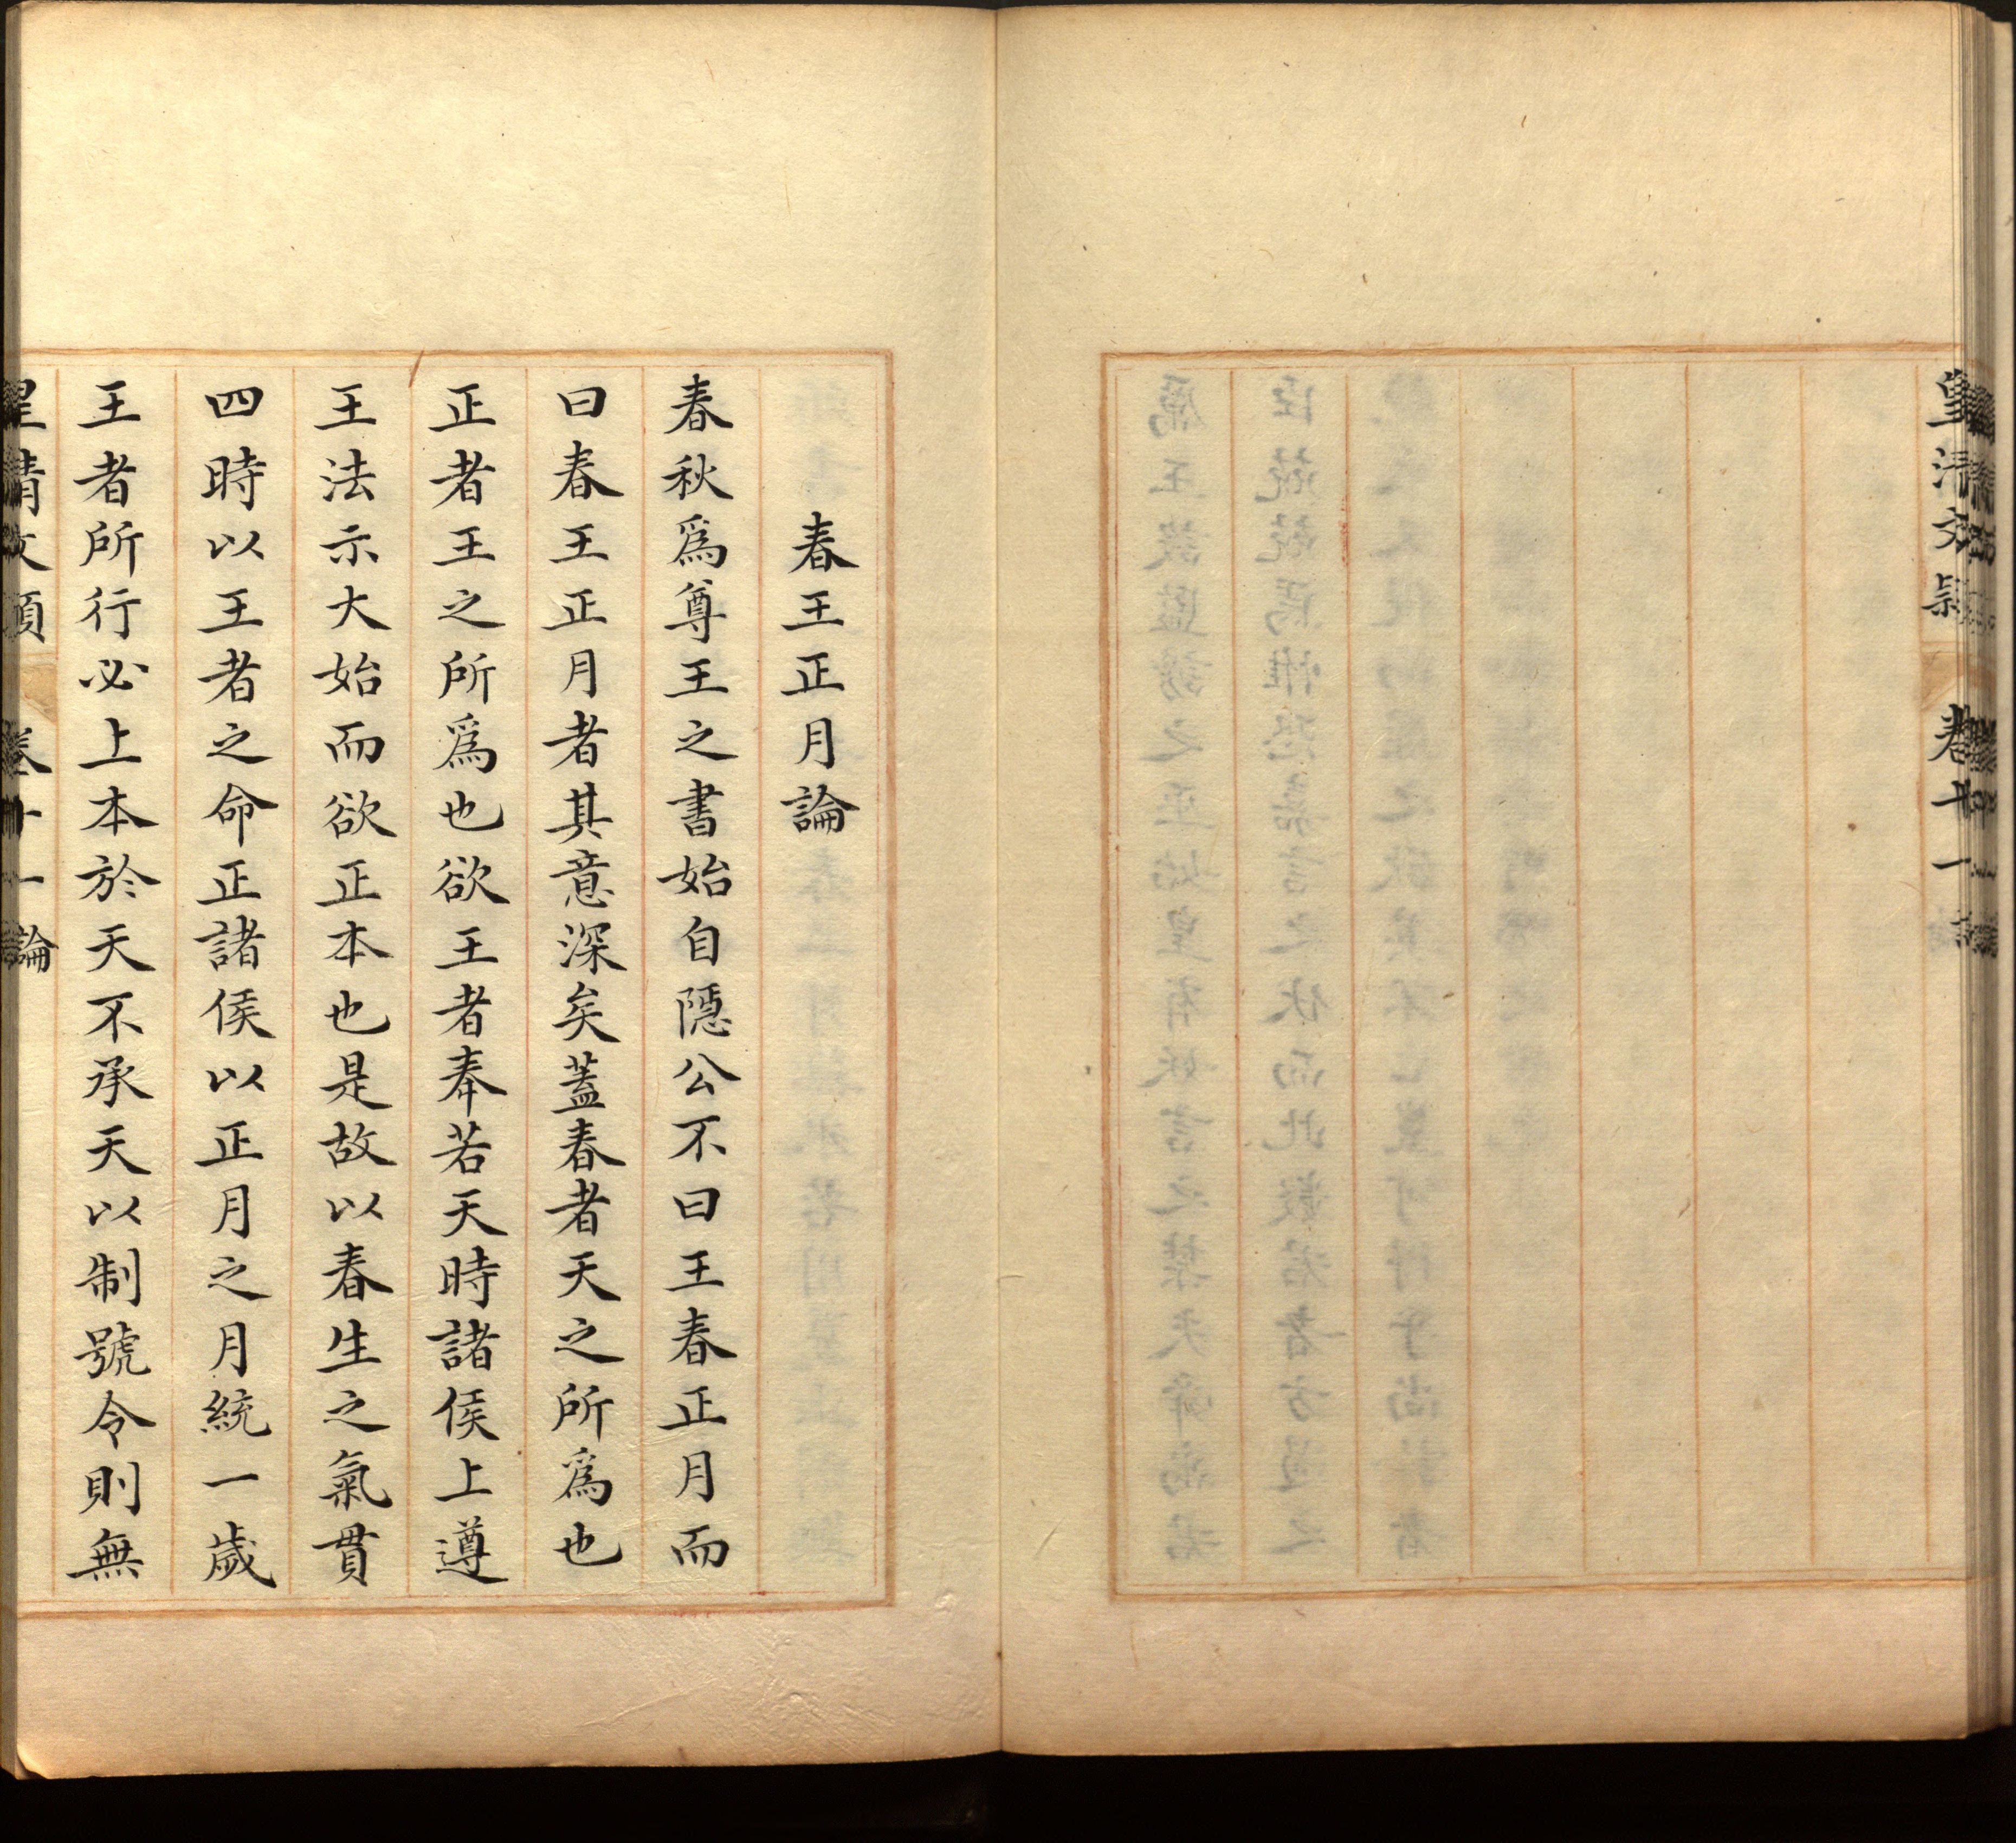 皇清文穎 卷十一 論
春王正月論
春秋爲尊王之書始自隱公不曰王春正月而
曰春王正月者其意深矣蓋春者天之所爲也
正者王之所爲也欲王者奉若天時諸侯上遵
王法示大始而欲正本也是故以春生之氣貫
四時以王者之命正諸侯以正月之月統一歲
王者所行必上本於天不承天以制號令則無
皇清文穎 卷十一 論